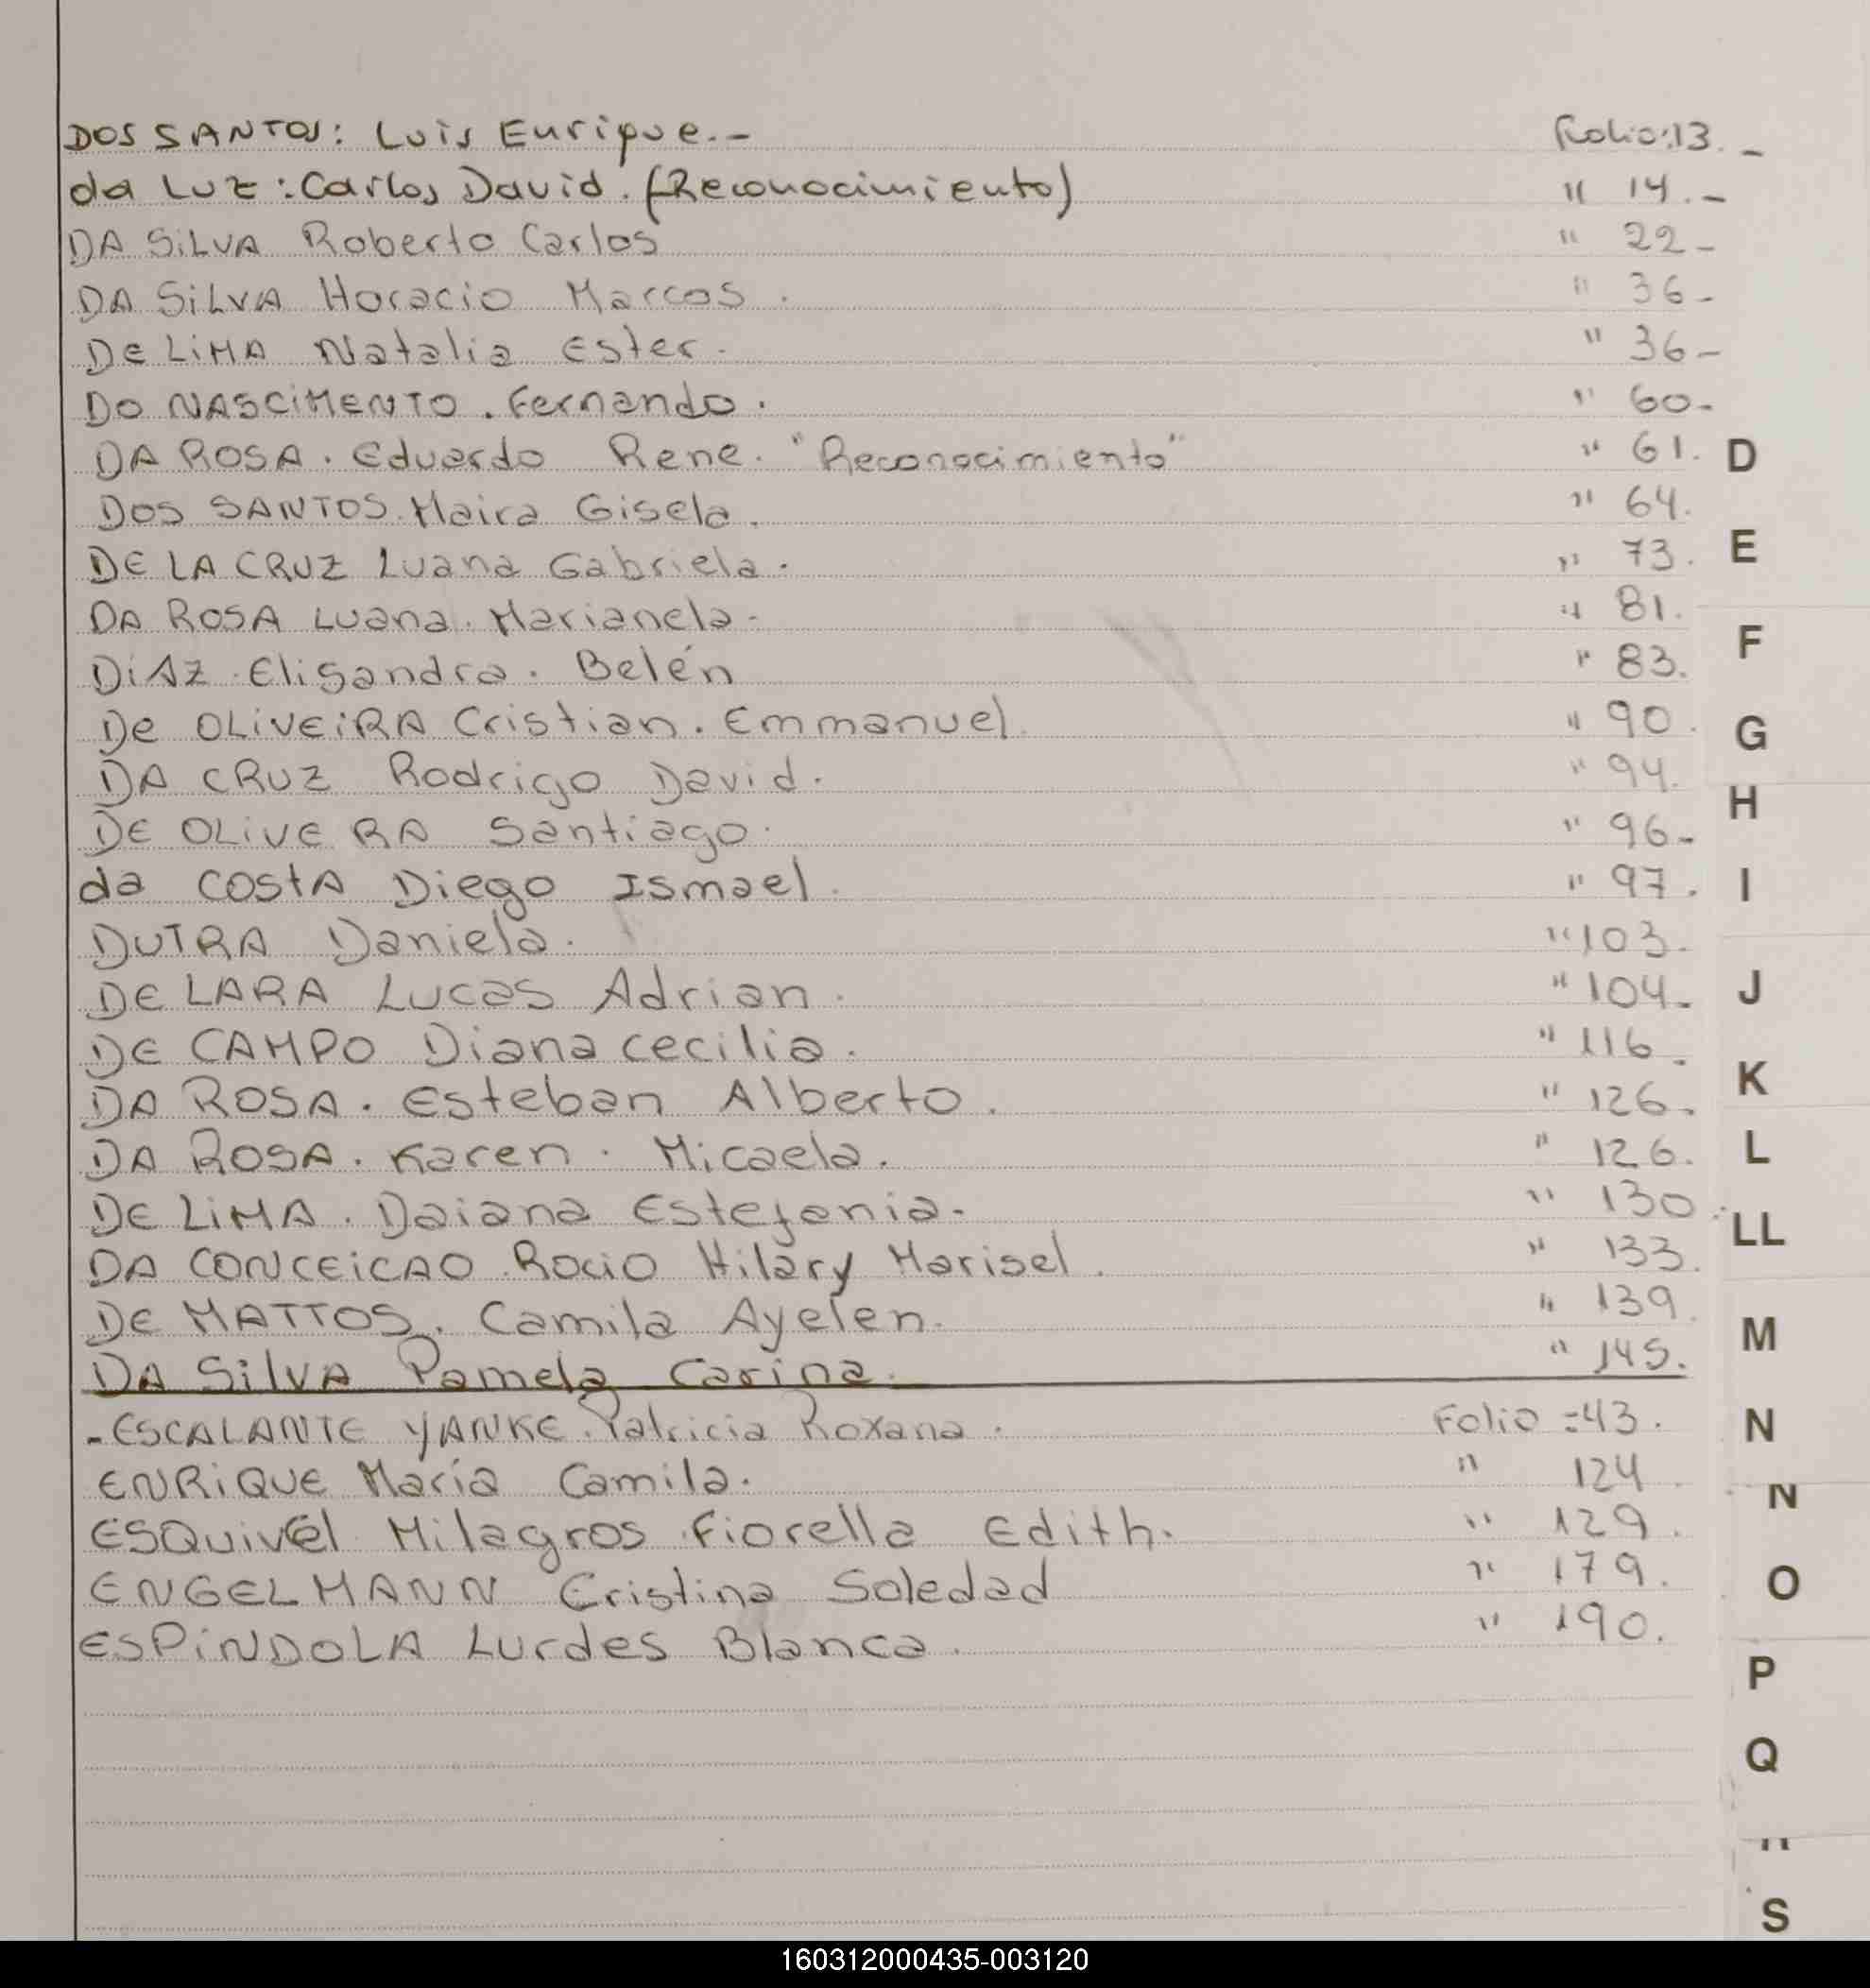 DOS SANTOS: Luis Enrique.- Folio:13.-
da Luz: Carlos David. (Reconocimiento) " 14.-
DA SiLVA Roberto Carlos " 22-
DA SiLVA Horacio Marcos. " 36-
De LiMA Natalia Ester. " 36-
DO NASCiMENTO. Fernando. " 60-
DA ROSA. Eduardo Rene. "Reconocimiento" " 61.
DOS SANTOS. Maira Gisela. " 64.
DE LA CRUZ Luana Gabriela. " 73.
DA ROSA Luana. Marianela- " 81.
DiAZ. Elisandra. Belén " 83.
De OLiVEiRA Cristian. Emmanuel. " 90.
DA CRUZ Rodrigo David. " 94.
DE OLiVE RA Santiago. " 96-
da COStA Diego Ismael. " 97.
DUTRA Daniela. " 103.
DE LARA Lucas Adrian. " 104-
DE CAMPO Diana cecilia. " 116.
DA ROSA. Esteban Alberto. " 126.
DA ROSA. Karen. Micaela. " 126.
DE LiMA. Daiana Estefania. " 130.
DA CONCEiCAO. Rocio Hilary Marisel. " 133.
DE MATTOS. Camila Ayelen. " 139.
DA SilVA Pamela Carina. " 145.
-ESCALANTE YANKE. Patricia Roxana. Folio =43.
ENRiQUE María Camila. " 124.
ESQuivel Milagros. Fiorella Edith. " 129.
ENGELMANN Cristina Soledad " 179.
ESPiNDOLA Lurdes Blanca. " 190.
D
E
F
G
H
I
J
K
L
LL
M
N
N
O
P
Q
S
160312000435-003120